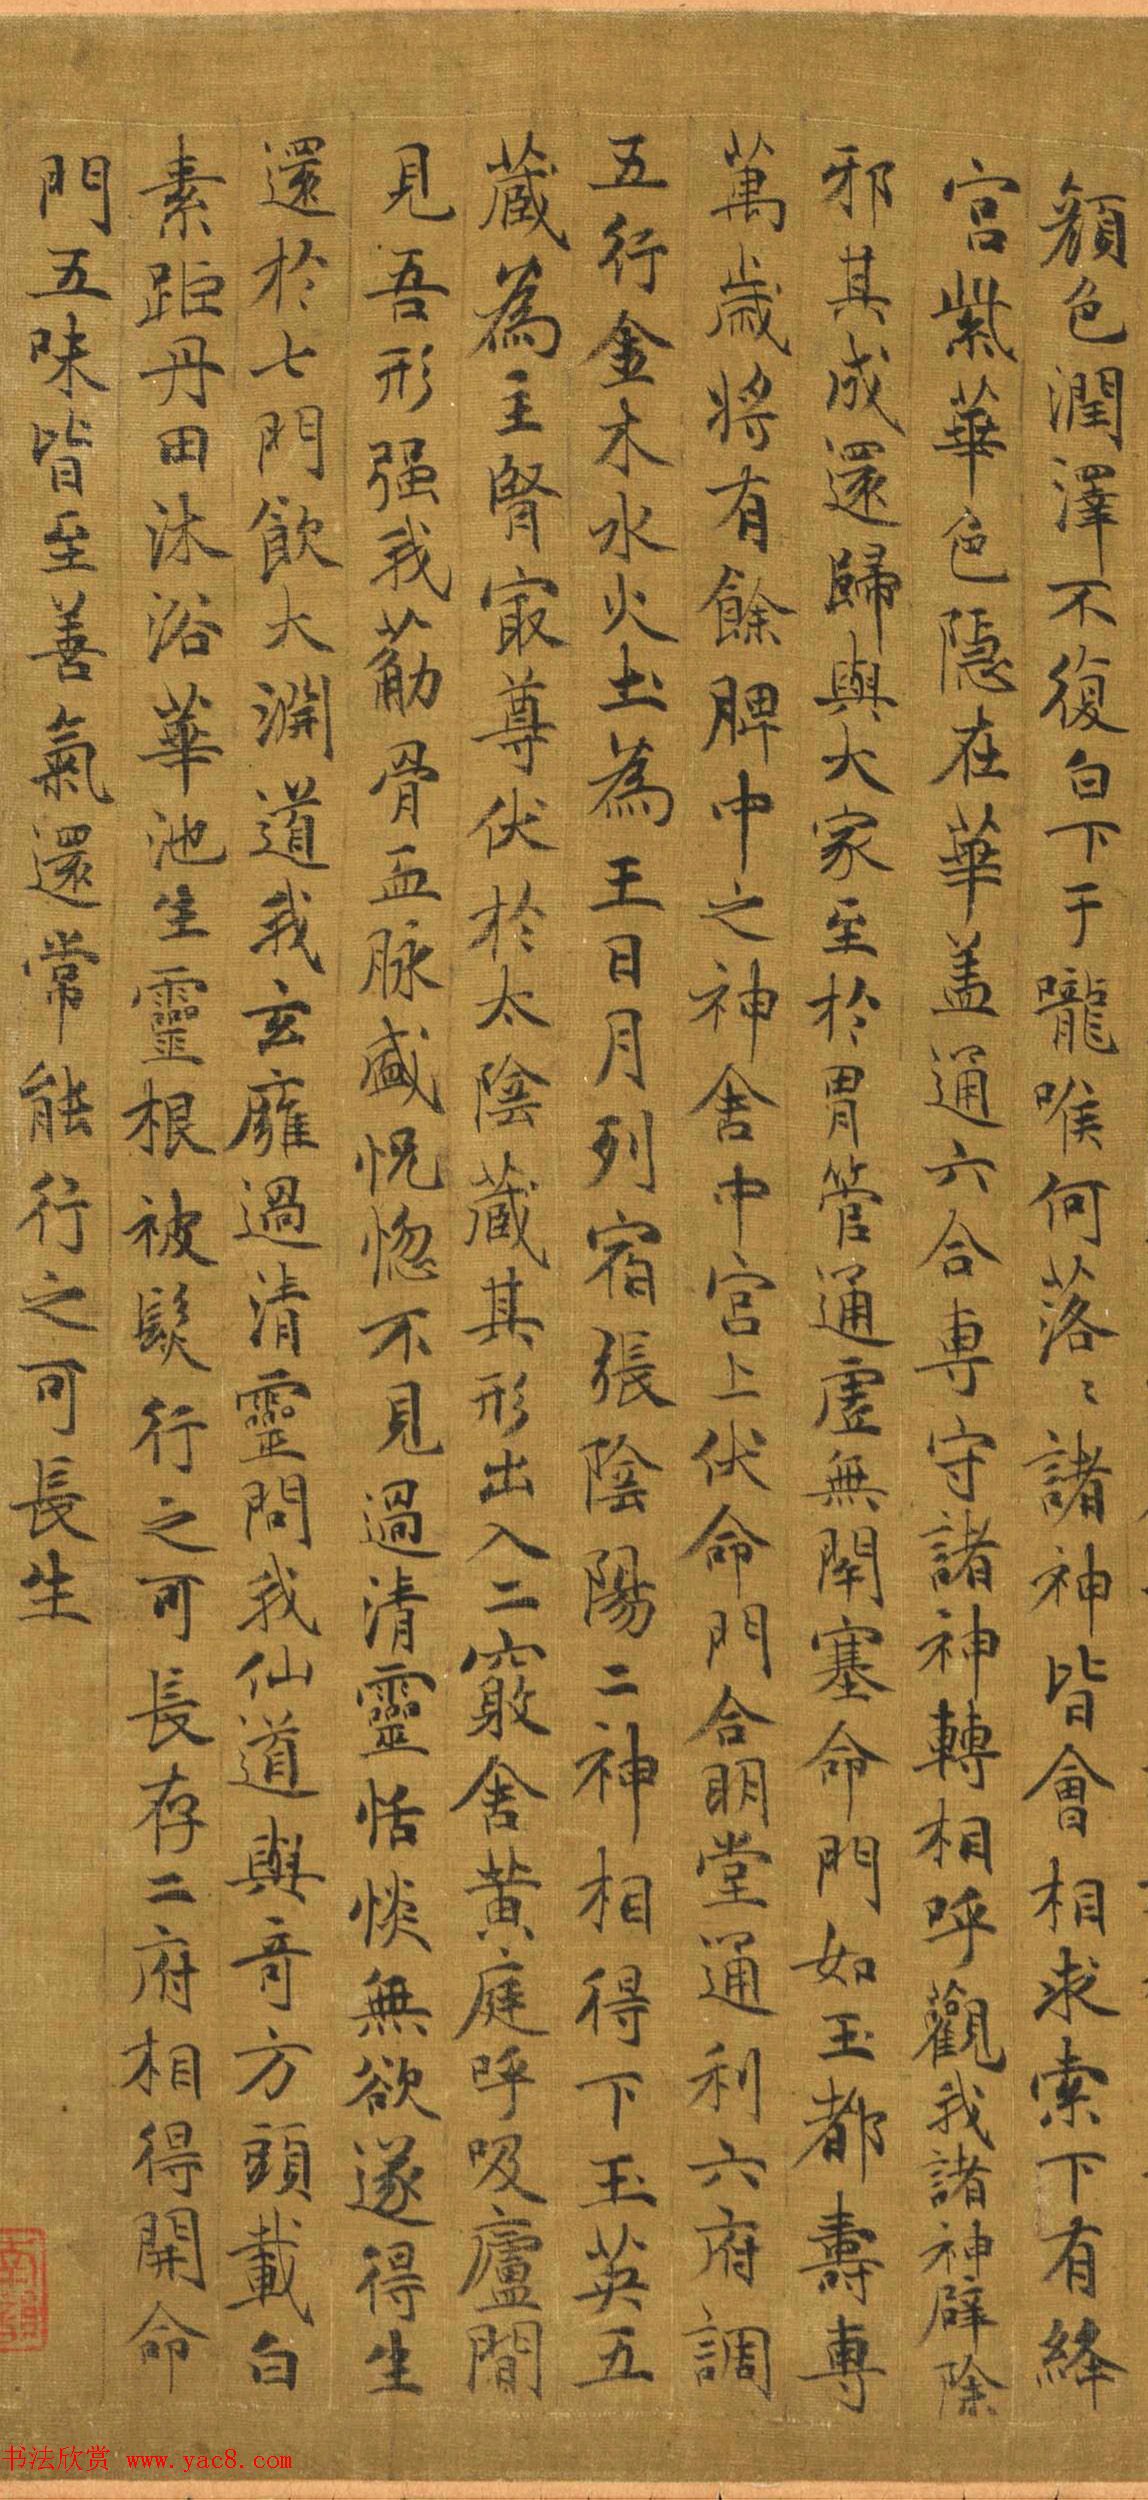 顏色潤澤不復白下于嚨喉何落落諸神皆會相求索下有絳
宮紫華色隱在華盖通六合專守諸神轉相呼觀我諸神辟除
邪其成還歸與大家至於胃管通虛無閉塞命門如玉都壽專
萬歲將有餘脾中之神舍中宮上伏命門合明堂通利六府調
五行金木水火土為王日月列宿張陰陽二神相得下玉英五
蔵為主腎㝡尊伏於太陰蔵其形出入二竅舍黄庭呼吸廬間
見吾形强我筋骨血脉盛恍惚不見過清靈恬惔無欲遂得生
還於七門飲大淵道我玄廱過清靈問我仙道與奇方頭載白
素距丹田沐浴華池生靈根被髮行之可長存二府相得開命
門五味皆至善氣還常能行之可長生
书法欣赏 www.yac8.com